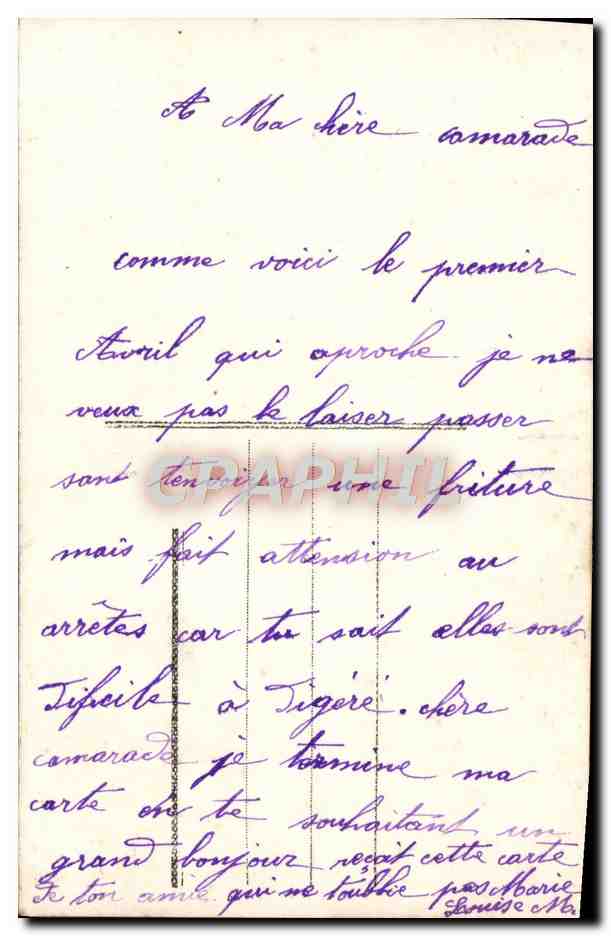 A Ma chère camarade
comme voici le premier
Avril qui aproche je ne
veux pas le laiser passer
sant tenvoyer une friture
mais fait attension au
arrêtes car tu sait elles sont
Dificile à Digéré. chère
camarade je termine ma
carte en te souhaitant un
grand bonjour reçoit cette carte
de ton amie qui ne toublie pas Marie
Louise M.
GRAPHIL